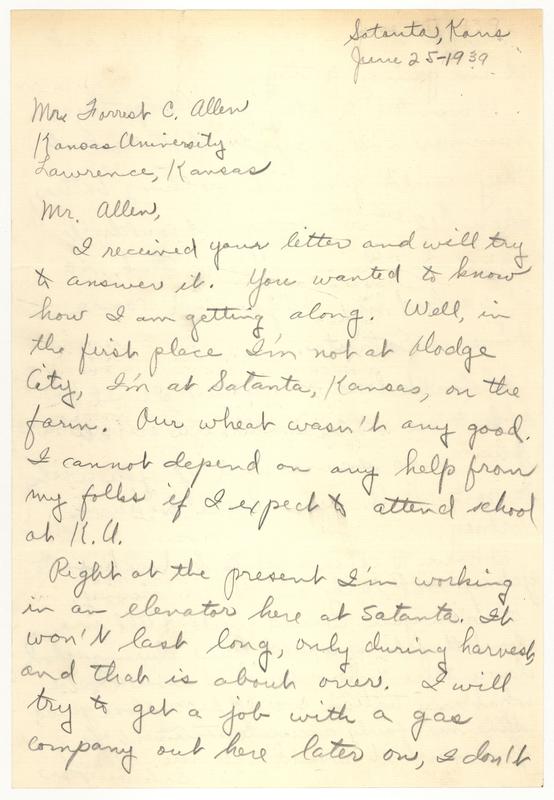 Satanta, Kans
June 25-1939
Mr. Forrest C. Allen
Kansas University
Lawrence, Kansas
Mr. Allen,
I received your letter and will try
to answer it. You wanted to know
how I am getting along. Well, in
the first place I'm not at Dodge
City, I'm at Satanta, Kansas, on the
farm. Our wheat wasn't any good.
I cannot depend on any help from
my folks if I expect to attend school
at K.U.
Right at the present I'm working
in an elevator here at Satanta. It
won't last long, only during harvest,
and that is about over. I will
try to get a job with a gas
company out here later on, I don't